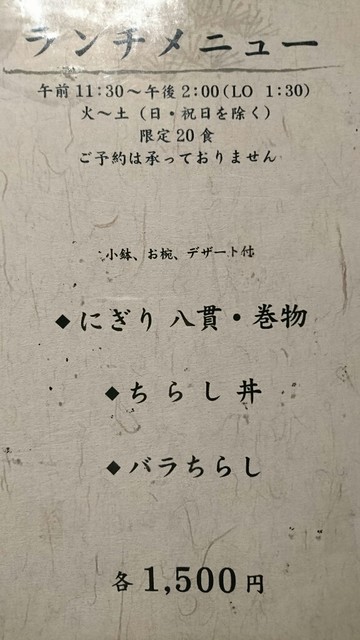 ランチメニュー
午前11:30～午後2:00(LO 1:30)
火～土（日・祝日を除く）
限定20食
ご予約は承っておりません
小鉢、お椀、デザート付
◆にぎり 八貫・巻物
◆ちらし丼
◆バラちらし
各1,500円